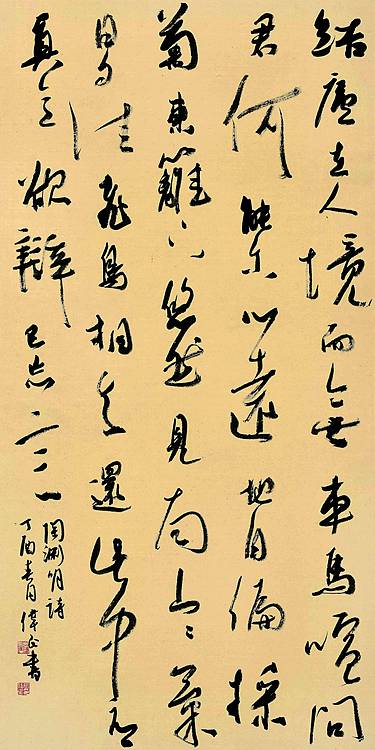 結廬在人境而無車馬喧問
君何能尔心遠地自偏採
菊東籬下悠然見南山々氣
日夕佳飛鳥相与還此中有
真意欲辯已忘言
陶淵明詩
丁酉春月偉書